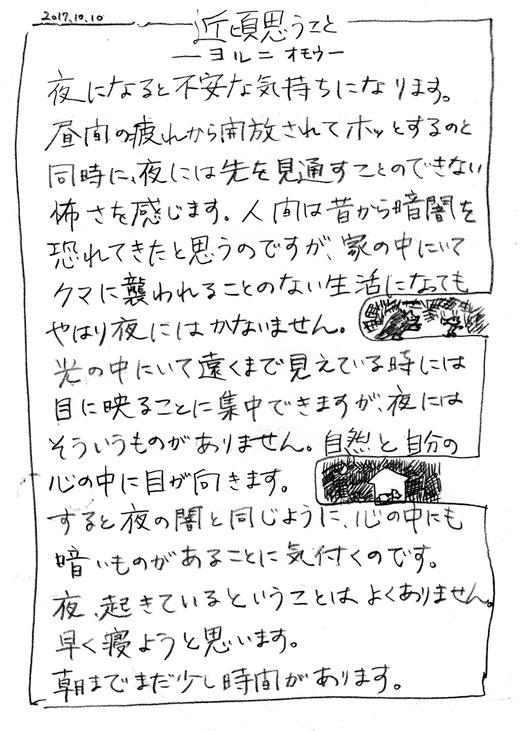 2017.10.10
近頃思うこと
—ヨルニ オモウー
夜になると不安な気持ちになります。
昼間の疲れから開放されてホッとするのと
同時に、夜には先を見通すことのできない
怖さを感じます。人間は昔から暗闇を
恐れてきたと思うのですが、家の中にいて
クマに襲われることのない生活になっても
やはり夜にはかないません。
光の中にいて遠くまで見えている時には
目に映ることに集中できますが、夜には
そういうものがありません。自然と自分の
心の中に目が向きます。
すると夜の闇と同じように、心の中にも
暗いものがあることに気付くのです。
夜、起きているということは、よくありません。
早く寝ようと思います。
朝までまだ少し時間があります。